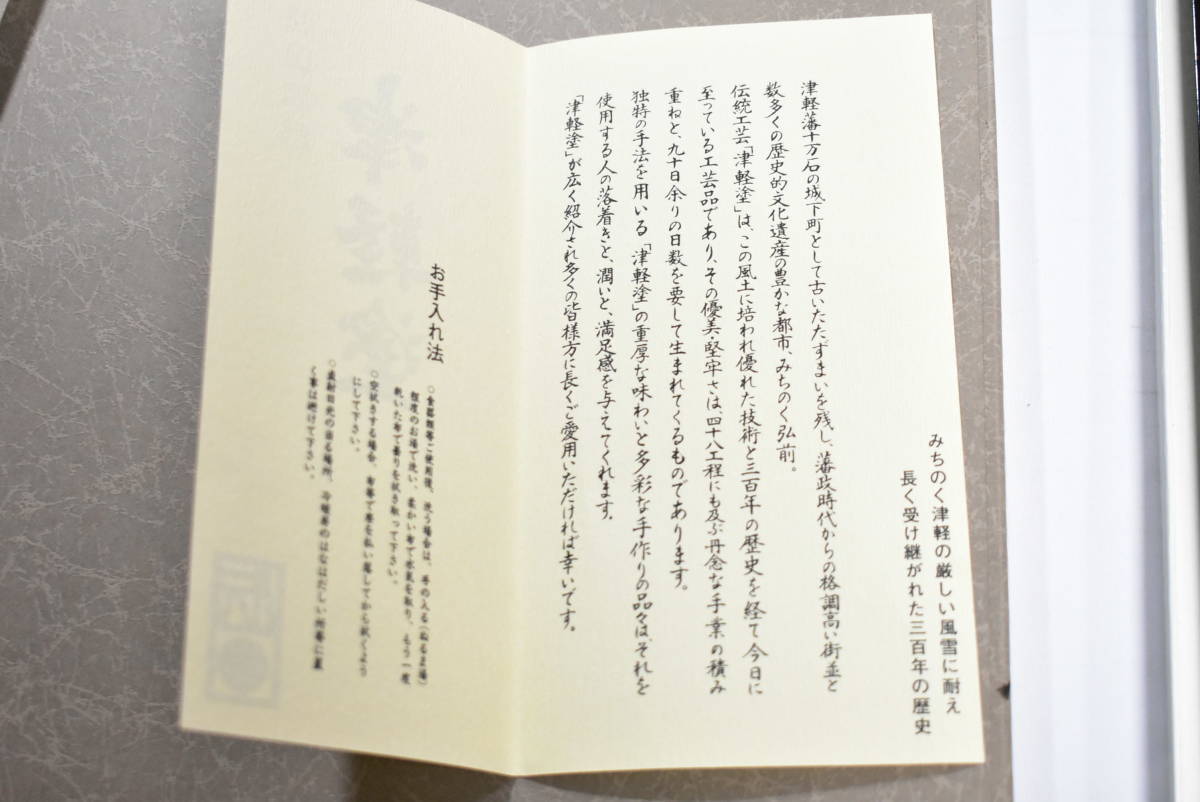 みちのく津軽の厳しい風雪に耐え
長く受け継がれた三百年の歴史
津軽藩十万石の城下町として古いたたずまいを残し、藩政時代からの格調高い街並と
数多くの歴史的文化遺産の豊かな都市、みちのく弘前。
伝統工芸「津軽塗」は、この風土に培われ優れた技術と三百年の歴史を経て今日に
至っている工芸品であり、その優美・堅牢さは、四十八工程にも及ぶ丹念な手業の積み
重ねと、九十日余りの日数を要して生まれてくるものであります。
独特の手法を用いる「津軽塗」の重厚な味わいと多彩な手作りの品々は、それを
使用する人の落着きと、潤いと、満足感を与えてくれます。
「津軽塗」が広く紹介され多くの皆様方に長くご愛用いただければ幸いです。
お手入れ法
○食器類等ご使用後、洗う場合は、手の入る(ぬるま湯)
程度のお湯で洗い、柔かい布で水気を取り、もう一度
乾いた布で曇りを拭き取って下さい。
○空拭きする場合、布等で塵を払い落してから拭くよう
にして下さい。
○直射日光の当る場所、冷暖差のはなはだしい所等に置
く事は避けて下さい。
津軽塗
伝